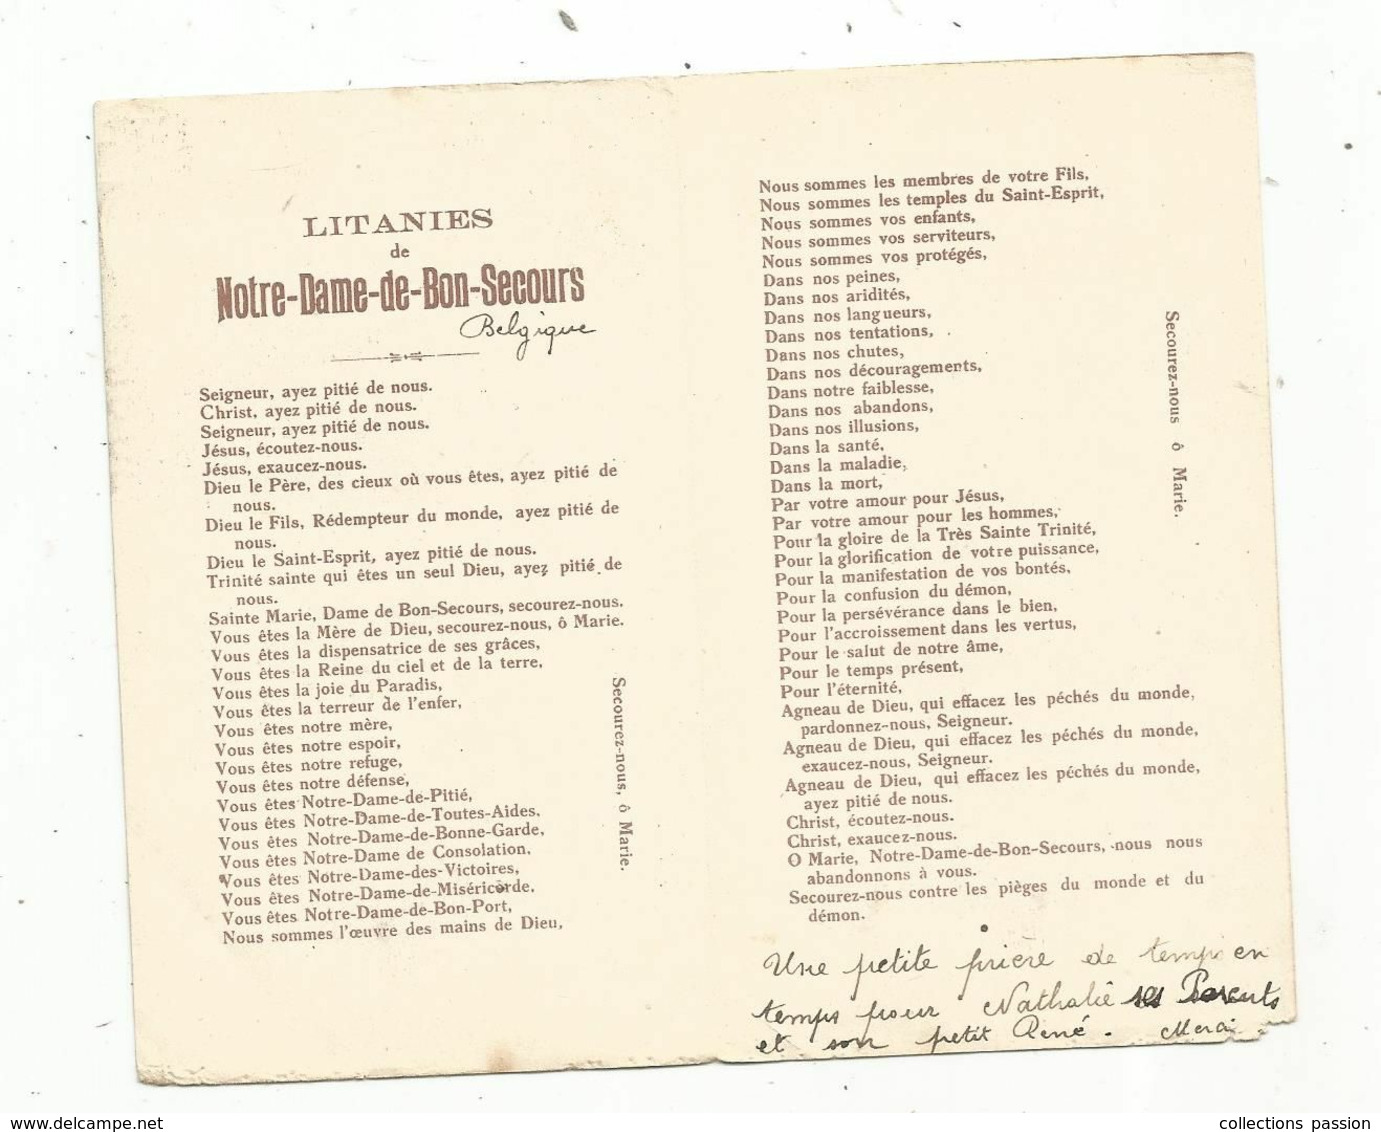 LITANIES
de
Notre-Dame-de-Bon-Secours
Belgique
Seigneur, ayez pitié de nous.
Christ, ayez pitié de nous.
Seigneur, ayez pitié de nous.
Jésus, écoutez-nous.
Jésus, exaucez-nous.
Dieu le Père, des cieux où vous êtes, ayez pitié de
nous.
Dieu le Fils, Rédempteur du monde, ayez pitié de
nous.
Dieu le Saint-Esprit, ayez pitié de nous.
Trinité sainte qui êtes un seul Dieu, ayez pitié de
nous.
Sainte Marie, Dame de Bon-Secours, secourez-nous.
Vous êtes la Mère de Dieu, secourez-nous, ô Marie.
Vous êtes la dispensatrice de ses grâces,
Vous êtes la Reine du ciel et de la terre,
Vous êtes la joie du Paradis,
Vous êtes la terreur de l'enfer,
Vous êtes notre mère,
Vous êtes notre espoir,
Vous êtes notre refuge,
Vous êtes notre défense,
Vous êtes Notre-Dame-de-Pitié,
Vous êtes Notre-Dame-de-Toutes-Aides,
Vous êtes Notre-Dame-de-Bonne-Garde,
Vous êtes Notre-Dame de Consolation,
Vous êtes Notre-Dame-des-Victoires,
Vous êtes Notre-Dame-de-Miséricorde,
Vous êtes Notre-Dame-de-Bon-Port,
Nous sommes l'œuvre des mains de Dieu,
Secourez-nous, ô Marie.
Nous sommes les membres de votre Fils,
Nous sommes les temples du Saint-Esprit,
Nous sommes vos enfants,
Nous sommes vos serviteurs,
Nous sommes vos protégés,
Dans nos peines,
Dans nos aridités,
Dans nos langueurs,
Dans nos tentations,
Dans nos chutes,
Dans nos découragements,
Dans notre faiblesse,
Dans nos abandons,
Dans nos illusions,
Dans la santé,
Dans la maladie,
Dans la mort,
Par votre amour pour Jésus,
Par votre amour pour les hommes,
Pour la gloire de la Très Sainte Trinité,
Pour la glorification de votre puissance,
Pour la manifestation de vos bontés,
Pour la confusion du démon,
Pour la persévérance dans le bien,
Pour l'accroissement dans les vertus,
Pour le salut de notre âme,
Pour le temps présent,
Pour l'éternité,
Secourez-nous ô Marie.
Agneau de Dieu, qui effacez les péchés du monde,
pardonnez-nous, Seigneur.
Agneau de Dieu, qui effacez les péchés du monde,
exaucez-nous, Seigneur.
Agneau de Dieu, qui effacez les péchés du monde,
ayez pitié de nous.
Christ, écoutez-nous.
Christ, exaucez-nous.
O Marie, Notre-Dame-de-Bon-Secours, nous nous
abandonnons à vous.
Secourez-nous contre les pièges du monde et du
démon.
Une petite prière de temps en
temps pour Nathalie ses Parents
et son petit René. Merci
www.delcampe.net
collections passion